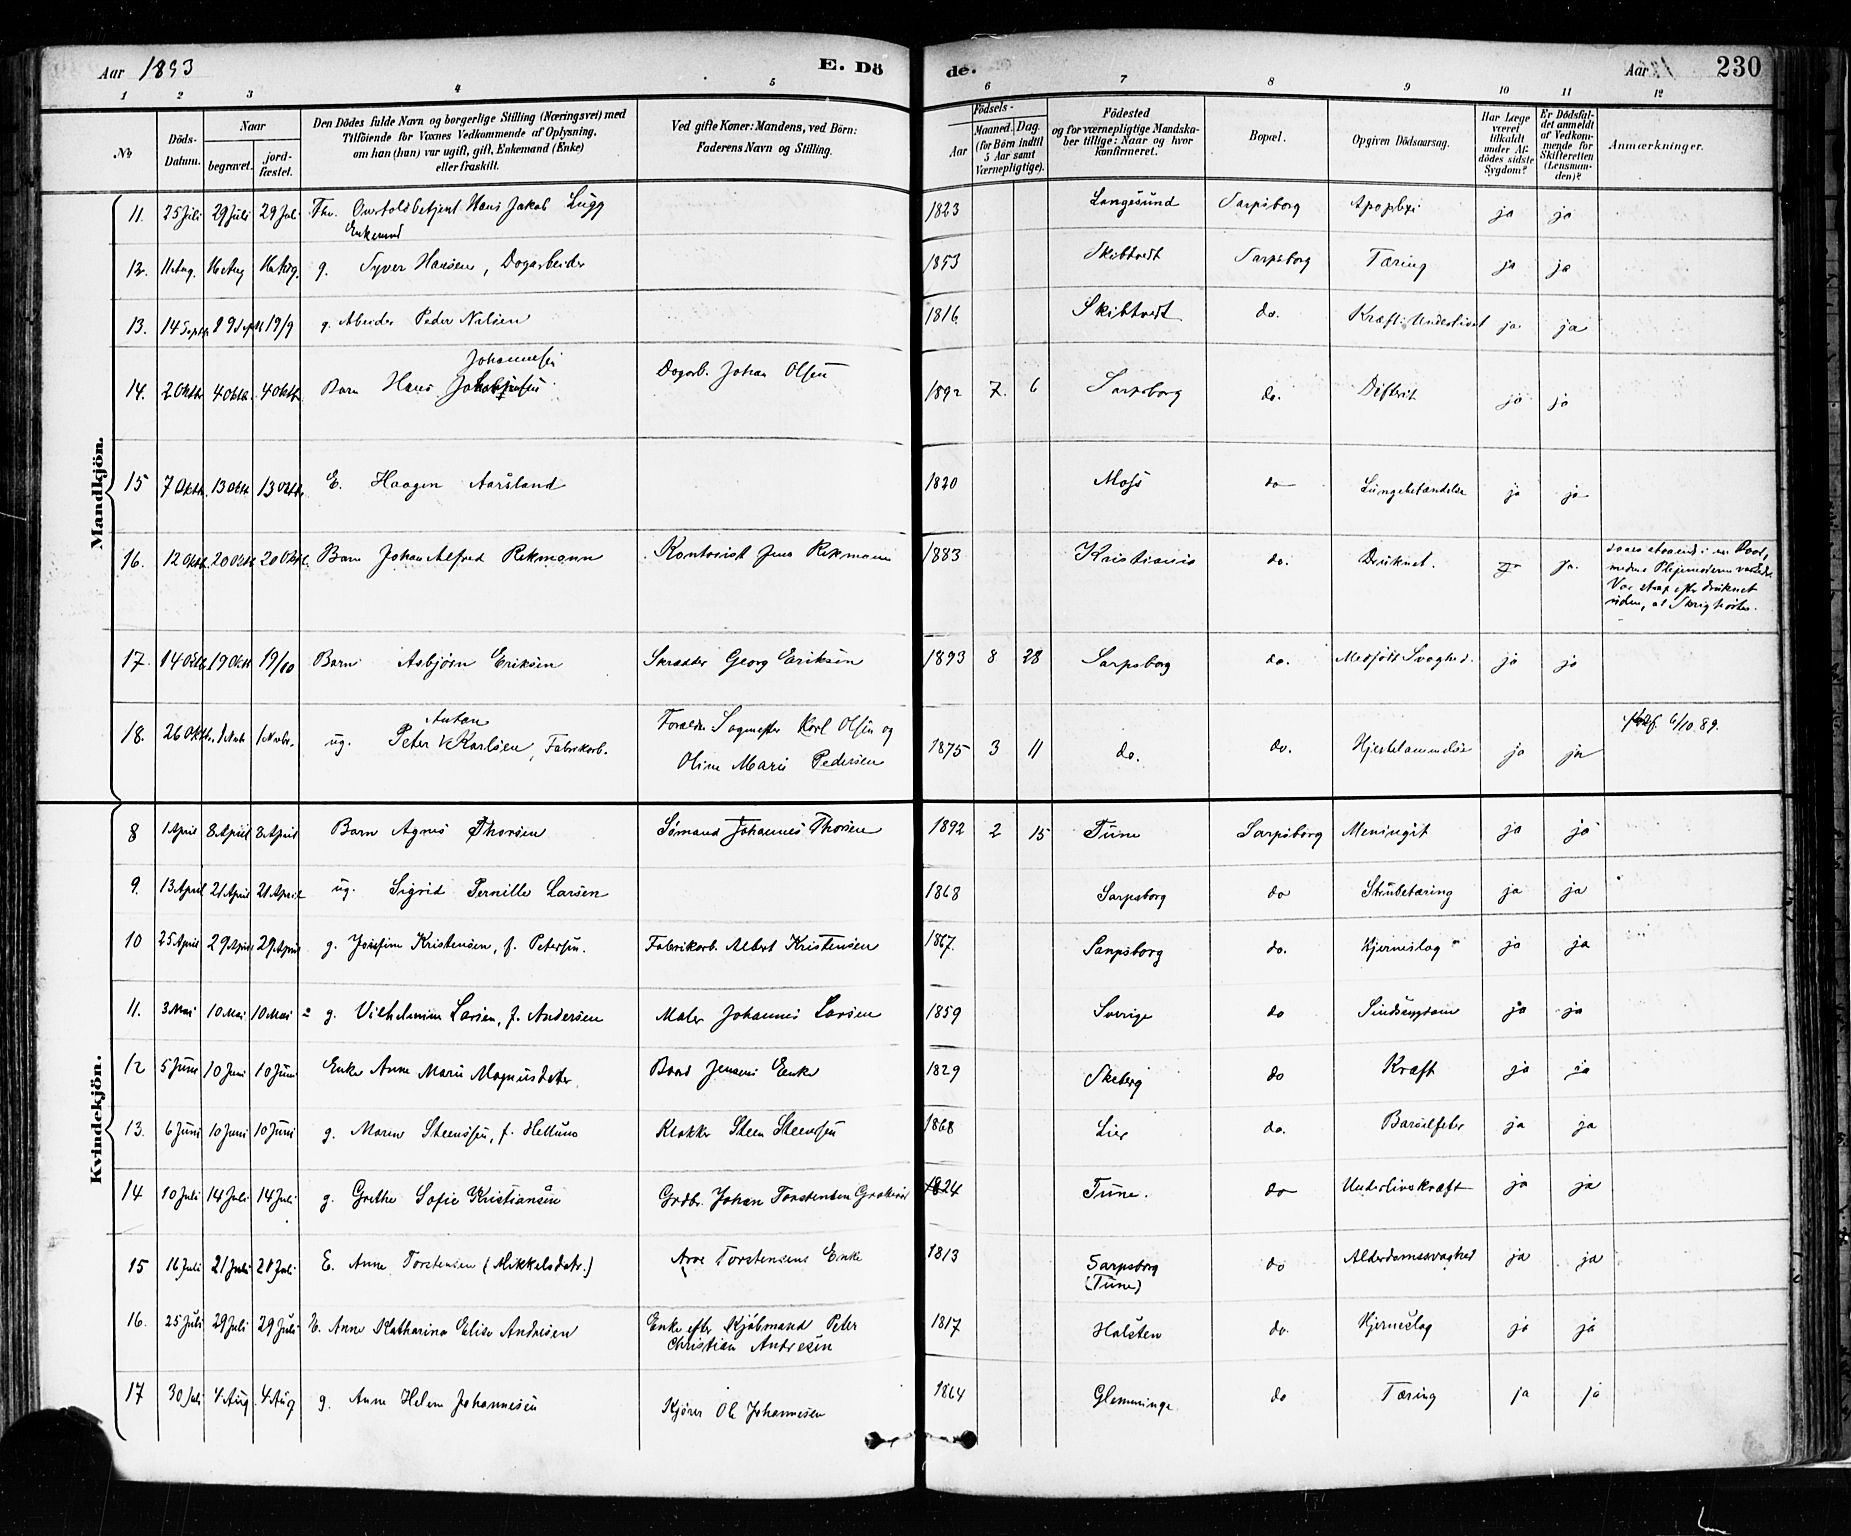 Aar 1893
E. Dö
de.
Aar
230
1 2 3 4 5 6 7 8 9 10 11 12
No
Döds-Datum.
Naar
begravet.
jord-fæstet.
Den Dödes fulde Navn og borgerlige Stilling (Næringsvei) med
Tilföiende for Voxnes Vedkommende af Oplysning,
om han (hun) var ugift, gift, Enkemand (Enke)
eller fraskilt.
Ved gifte Koner: Mandens, ved Börn:
Faderens Navn og Stilling.
Födsels-
Aar
Maaned. Dag.
(for Börn indtil
5 Aar samt
Værnepligtige).
Födested
og for værnepligtige Mandska-
ber tillige: Naar og hvor
konfirmeret.
Bopæl.
Opgiven Dödsaarsag.
Har Læge
været
tilkaldt
under Af-
dödes sidste
Sygdom?
Er Dödsfal-
det anmeldt
af Vedkom-
mende for
Skifteretten
(Lensman-
den)?
Anmærkninger.
Mandkjön.
11. 25 Juli 29 Juli 29 Juli Fhv. Overtoldbetjent Hans Jakob Lugg 1823 Langesund Sarpsborg Apoplexi ja ja
Enkemand
12. 11 Aug. 16 Aug 16 Aug. g. Syver Hansen, Dagarbeider 1853 Skibtvedt Sarpsborg Tæring ja ja
13. 14 Septb. 19 Septb 19/9 g. Arbeider Peder Nilsen 1816 Skibtvedt do. Kræft i Underlivet ja ja
Johannesen
14. 2 Oktb. 4 Oktb. 4 Oktb. Barn Hans Dagarb. Johan Olsen 1892 7. 6 Sarpsborg do. Difterit ja ja
15 7 Oktb. 13 Oktb. 13 Oktb. E. Haagen Aarsland 1820 Moss do Lungebetændelse ja ja
16. 12 Oktb. 20 Oktb 20 Oktb. Barn Johan Alfred Rekmann Kontorist Jens Rekmann 1883 Kristiania do. Druknet. ja ja.
Var strax efter druknet
uden, at Skrig hørtes.
17. 14 Oktb. 19 Oktb 19/10 Barn Asbjörn Eriksen Skrædder Georg Eriksen 1893 8 28 Sarpsborg do. Medfödt Svaghed. ja ja
Anton
18. 26 Oktb. 1 Novb 1 Novbr. ug. Peter Karlsen, Fabrikarb. Forældre Sagmester Karl Olsen og 1875 3 11 do. do. Hjertelammelse ja ja 6/10 89.
Oline Marie Pedersen
Kvindekjön.
8 1 April 8 April 8 April Barn Agnes Thorsen Sömand Johannes Thorsen 1892 2 15 Tune Sarpsborg Meningit ja ja
9. 13 April 21 April 21 April ug. Sigrid Pernille Larsen 1868 Sarpsborg do Strubetæring ja ja
10 25 April 29 April 29 April g. Josefine Kristensen, f. Petersen. Fabrikarb. Albert Kristensen 1867. Sarpsborg do. Hjerneslag ja ja
11. 3 Mai 10 Mai 10 Mai g. Vilhelmine Larsen, f. Andersen Maler Johannes Larsen 1859 Sverige do Sindssygdom ja ja
12 5 Juni 10 Juni 10 Juni Enke Anne Marie Magnusdatter Baard Jensens Enke 1829 Skeberg do Kræft ja ja
13. 6 Juni 10 Juni 10 Juni g. Maren Steensen, f. Hellum Klokker Steen Steensen 1868 Lier do. Barselfeber ja ja
14 10 Juli 14 Juli 14 Juli g. Grethe Sofie Kristiansen Grdbr. Johan Torstensen 1824 Tune. do Underlivskræft ja ja
15 16 Juli 21 Juli 21 Juli E. Anne Torstensen (Mikkelsdatr.) Arve Torstensens Enke 1813 Sarpsborg do Alderdomssvaghed ja ja
(Tune)
16. 25 Juli 29 Juli 29 Juli E. Anne Katharina Elise Andresen Enke efter Kjöbmand Peter 1817 Holsten do. Hjerneslag ja ja
Christian Andresen
17 30 Juli 4 Aug 4 Aug g. Anne Helene Johannesen Kjörer Ole Johannesen 1864 Glemminge do Tæring ja ja